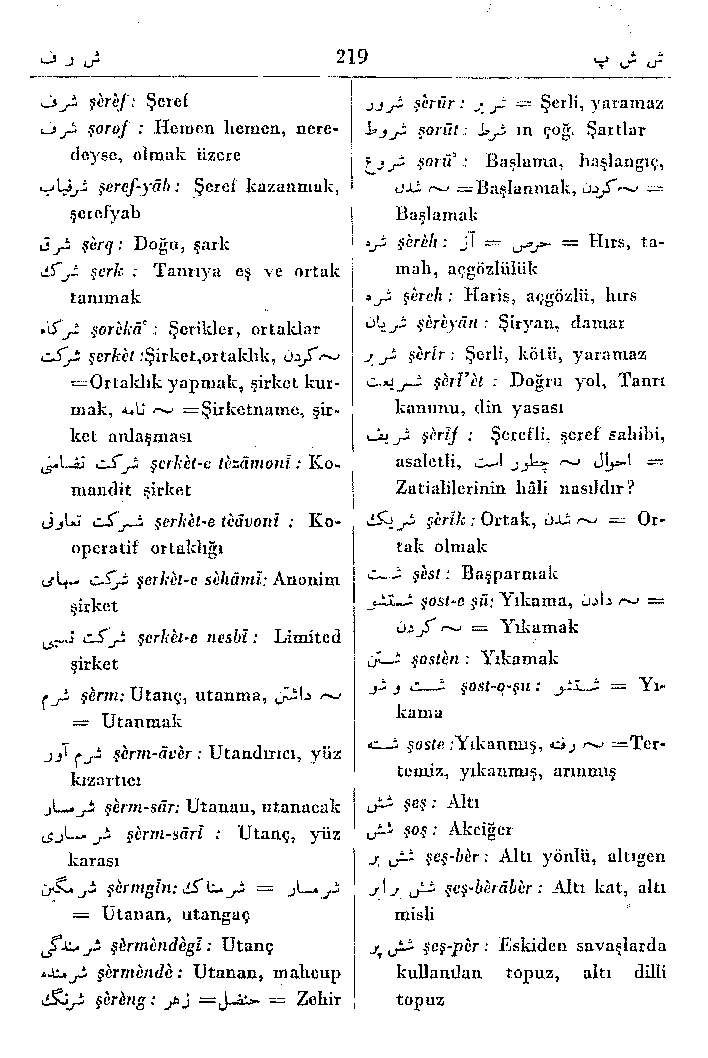 ش ر ف 219 ش ش پ
شرف şèrèf: Şeref
شرف şoruf : Hemen hemen, nere-
deyse, olmak üzere
شرفیاب şeref-yâb: Şeref kazanmak,
şerefyab
شرق şèrq: Doğu, şark
شرك şerk : Tanrıya eş ve ortak
tanımak
شرکاء şorèkâ' : Şerikler, ortaklar
شرکت şerkèt :Şirket,ortaklık, ~ کردن
=Ortaklık yapmak, şirket kur-
mak, ~ نامه =Şirketname, şir-
ket anlaşması
شرکت تضامنی şerkèt-e tèzâmonî : Ko-
mandit şirket
شرکت تعاونی şerkèt-e tèâvonî : Ko-
operatif ortaklığı
شرکت سهامی şerkèt-e sèhâmî: Anonim
şirket
شرکت نسبی şerkèt-e nesbî : Limited
şirket
شرم şèrm: Utanç, utanma, ~ داشتن
= Utanmak
شرم آور şèrm-âvèr : Utandırıcı, yüz
kızartıcı
شرمسار şèrm-sâr: Utanan, utanacak
شرمساری şèrm-sârî : Utanç, yüz
karası
شرمگین şèrmgîn: شرمناك = شرمسار
= Utanan, utangaç
شرمندگی şèrmèndègî : Utanç
شرمنده şèrmèndè : Utanan, mahcup
شرنگ şèrèng : زهر =حنظل = Zehir
شرور şèrûr : شریر = Şerli, yaramaz
شروط şorût : شرط ın çoğ. Şartlar
شروع şorû' : Başlama, başlangıç,
~ شدن =Başlanmak, ~ کردن =
Başlamak
شره şèrèh : آز = حرص = Hırs, ta-
mah, açgözlülük
شره şèreh : Haris, açgözlü, hırs
شریان şèrèyân : Şiryan, damar
شریر şèrîr : Şerli, kötü, yaramaz
شریعت şèrî'èt : Doğru yol, Tanrı
kanunu, din yasası
شریف şèrîf : Şerefli, şeref sahibi,
asaletli, احوال ~ چطور است =
Zatialilerinin hâli nasıldır?
شریك şèrîk : Ortak, ~ شدن = Or-
tak olmak
شست şèst : Başparmak
شستشو şost-e şû: Yıkama, ~ دادن =
~ کردن = Yıkamak
شستن şostèn : Yıkamak
شست و شو şost-o-şu : شستشو = Yı-
kama
شسته şoste :Yıkanmış, ~ رفته =Ter-
temiz, yıkanmış, arınmış
شش şeş : Altı
شش şoş : Akciğer
شش بر şeş-bèr : Altı yönlü, altıgen
شش برابر şeş-bèrâbèr : Altı kat, altı
misli
شش پر şeş-pèr : Eskiden savaşlarda
kullanılan topuz, altı dilli
topuz